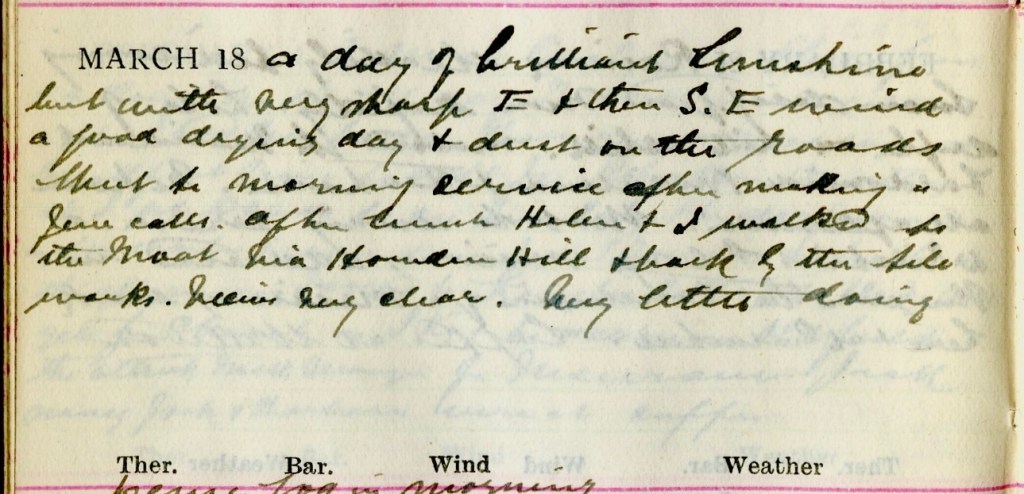 MARCH 18 a day of brilliant Sunshine
but with very sharp E & then S. E wind
a good drying day & dust on the roads
Went to morning service after making a
few calls. After lunch Helen & I walked to
the Moat via Howden Hill & back by the tile
works. Views very clear. Very little doing
Ther. Bar. Wind Weather
in morning